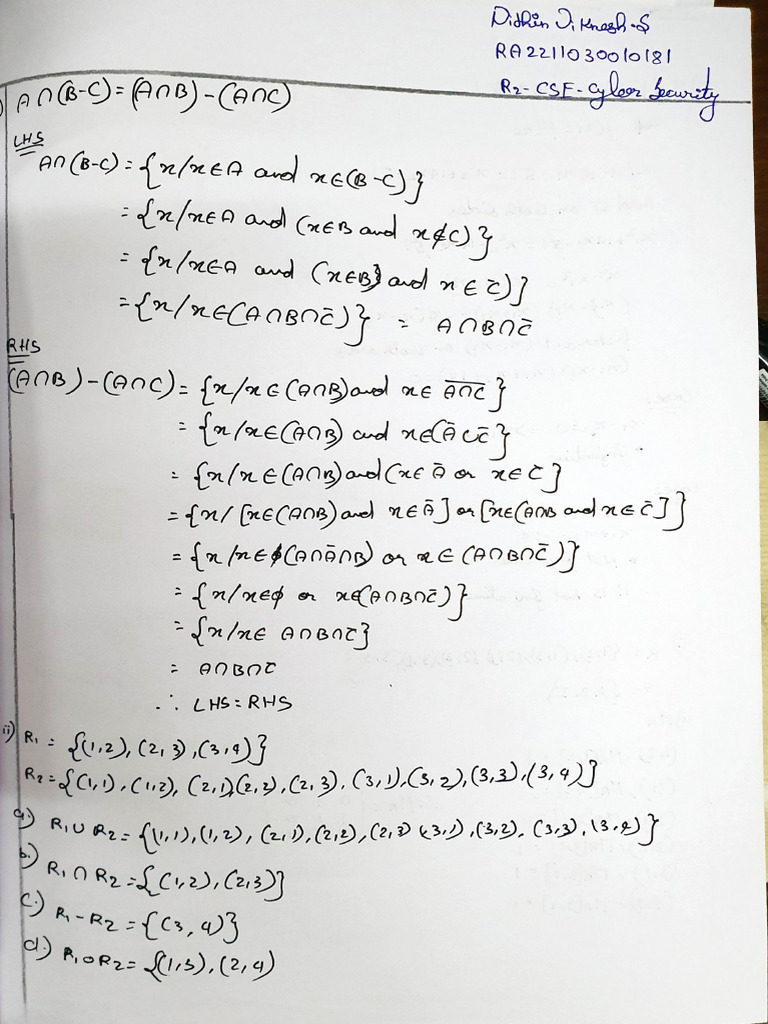 RA2211030010181
R2-CSE-Cyber Security
) A∩(B-C)=(A∩B)-(A∩C)
LHS
A∩(B-C)={x/x∈A and x∈(B-C)}
={x/x∈A and (x∈B and x∉C)}
={x/x∈A and (x∈B} and x∈C̄)}
={x/x∈(A∩B∩C̄)} = A∩B∩C̄
RHS
(A∩B)-(A∩C)={x/x∈(A∩B) and x∈ A̅∩̅C̅}
={x/x∈(A∩B) and x∈(Ā∪C̄}
={x/x∈(A∩B) and (x∈Ā or x∈C̄}
={x/[x∈(A∩B) and x∈Ā] or [x∈(A∩B and x∈C̄]}
={x/x∈ϕ(A∩Ā∩B) or x∈(A∩B∩C̄)}
={x/x∈ϕ or x∈(A∩B∩C̄)}
={x/x∈ A∩B∩C̄}
= A∩B∩C̄
∴ LHS=RHS
ii) R1 = {(1,2),(2,3),(3,4)}
R2={(1,1),(1,2),(2,1),(2,2),(2,3),(3,1),(3,2),(3,3),(3,4)}
a.) R1∪R2={(1,1),(1,2),(2,1),(2,2),(2,3),(3,1),(3,2),(3,3),(3,4)}
b.) R1∩R2={(1,2),(2,3)}
c.) R1-R2={(3,4)}
d.) R1∘R2={(1,3),(2,4)